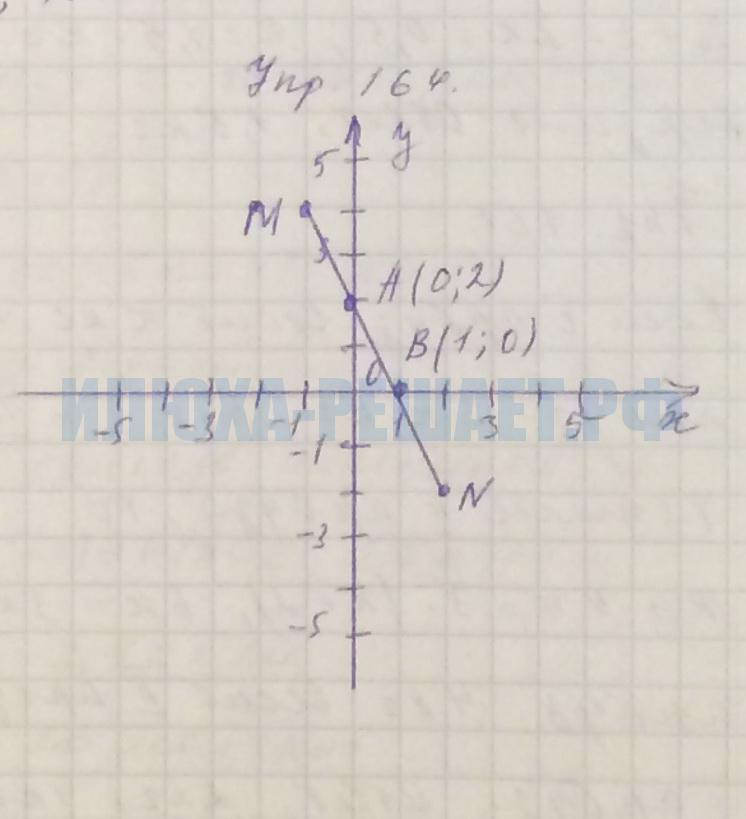 Упр 164.
5 у
М
3
А(0;2)
В(1;0)
0
ИЛЮХА-РЕШАЕТ.РФ
-5 -3 -1 1 3 5 х
-1
N
-3
-5